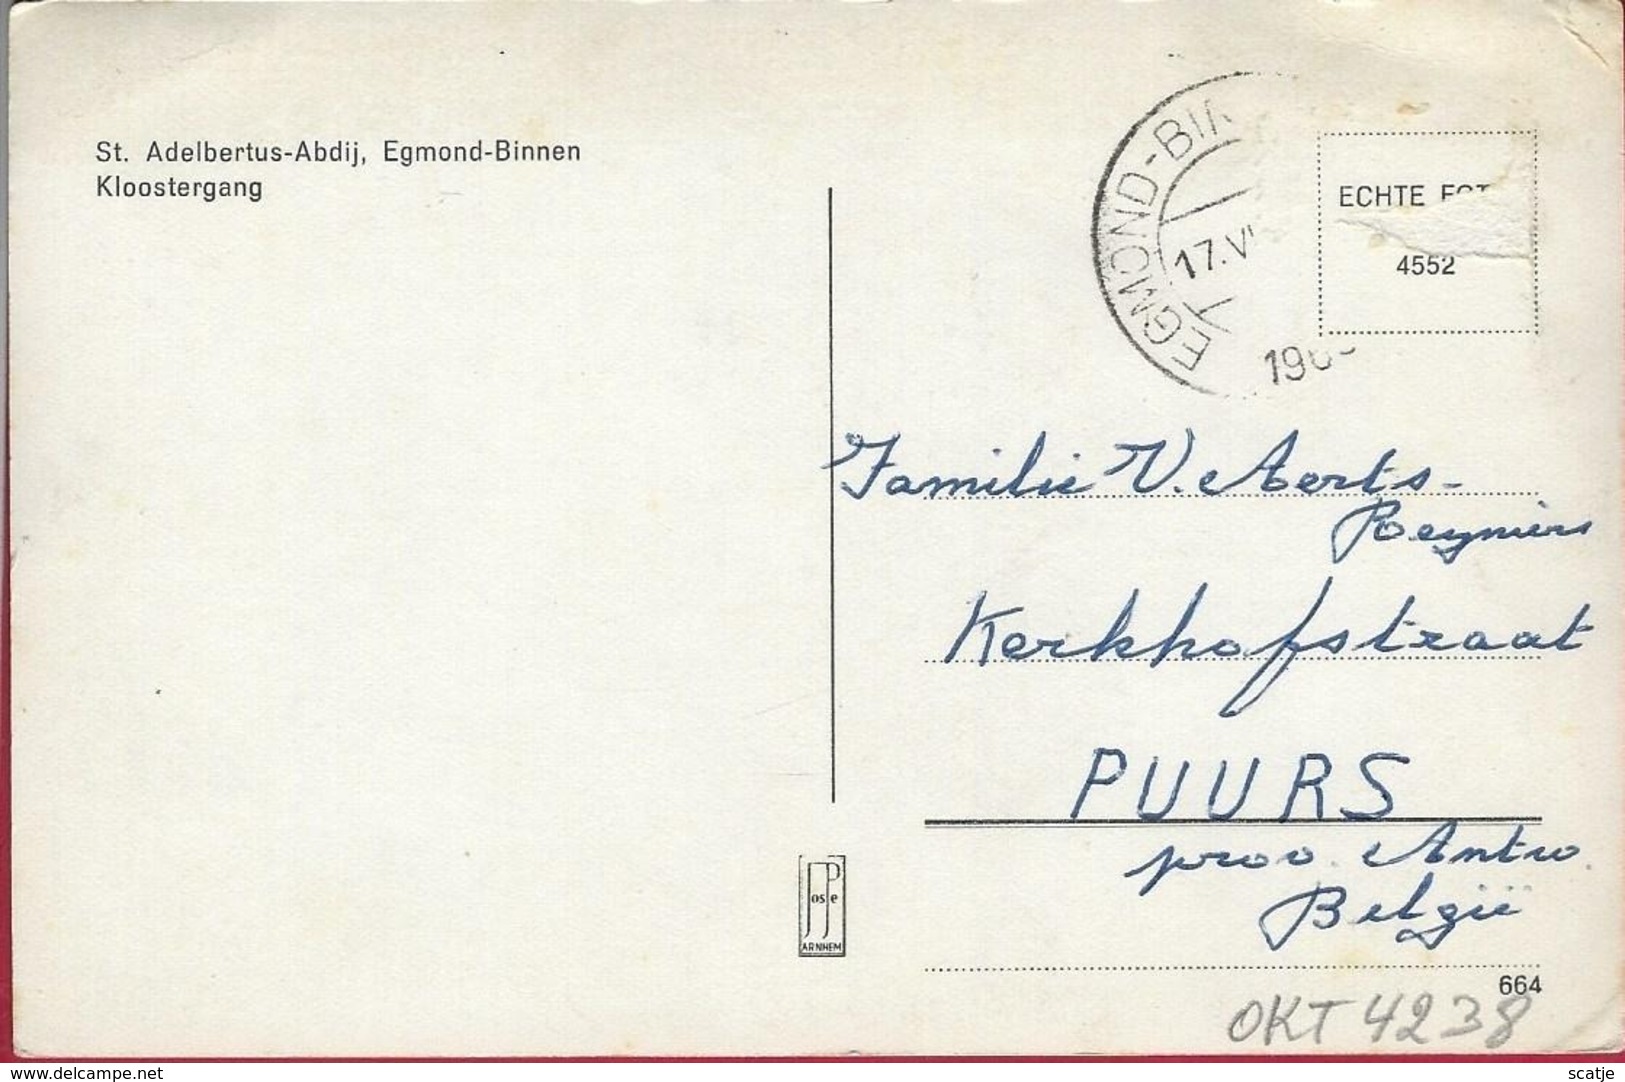 St. Adelbertus-Abdij, Egmond-Binnen
Kloostergang
EGMOND-BIN
17.VI
196
ECHTE FOT
4552
Familie V. Aerts-
Reyniers
Kerkhofstraat
PUURS
prov. Antw.
België
Jos Pe
ARNHEM
664
OKT 4238
www.delcampe.net
scatje